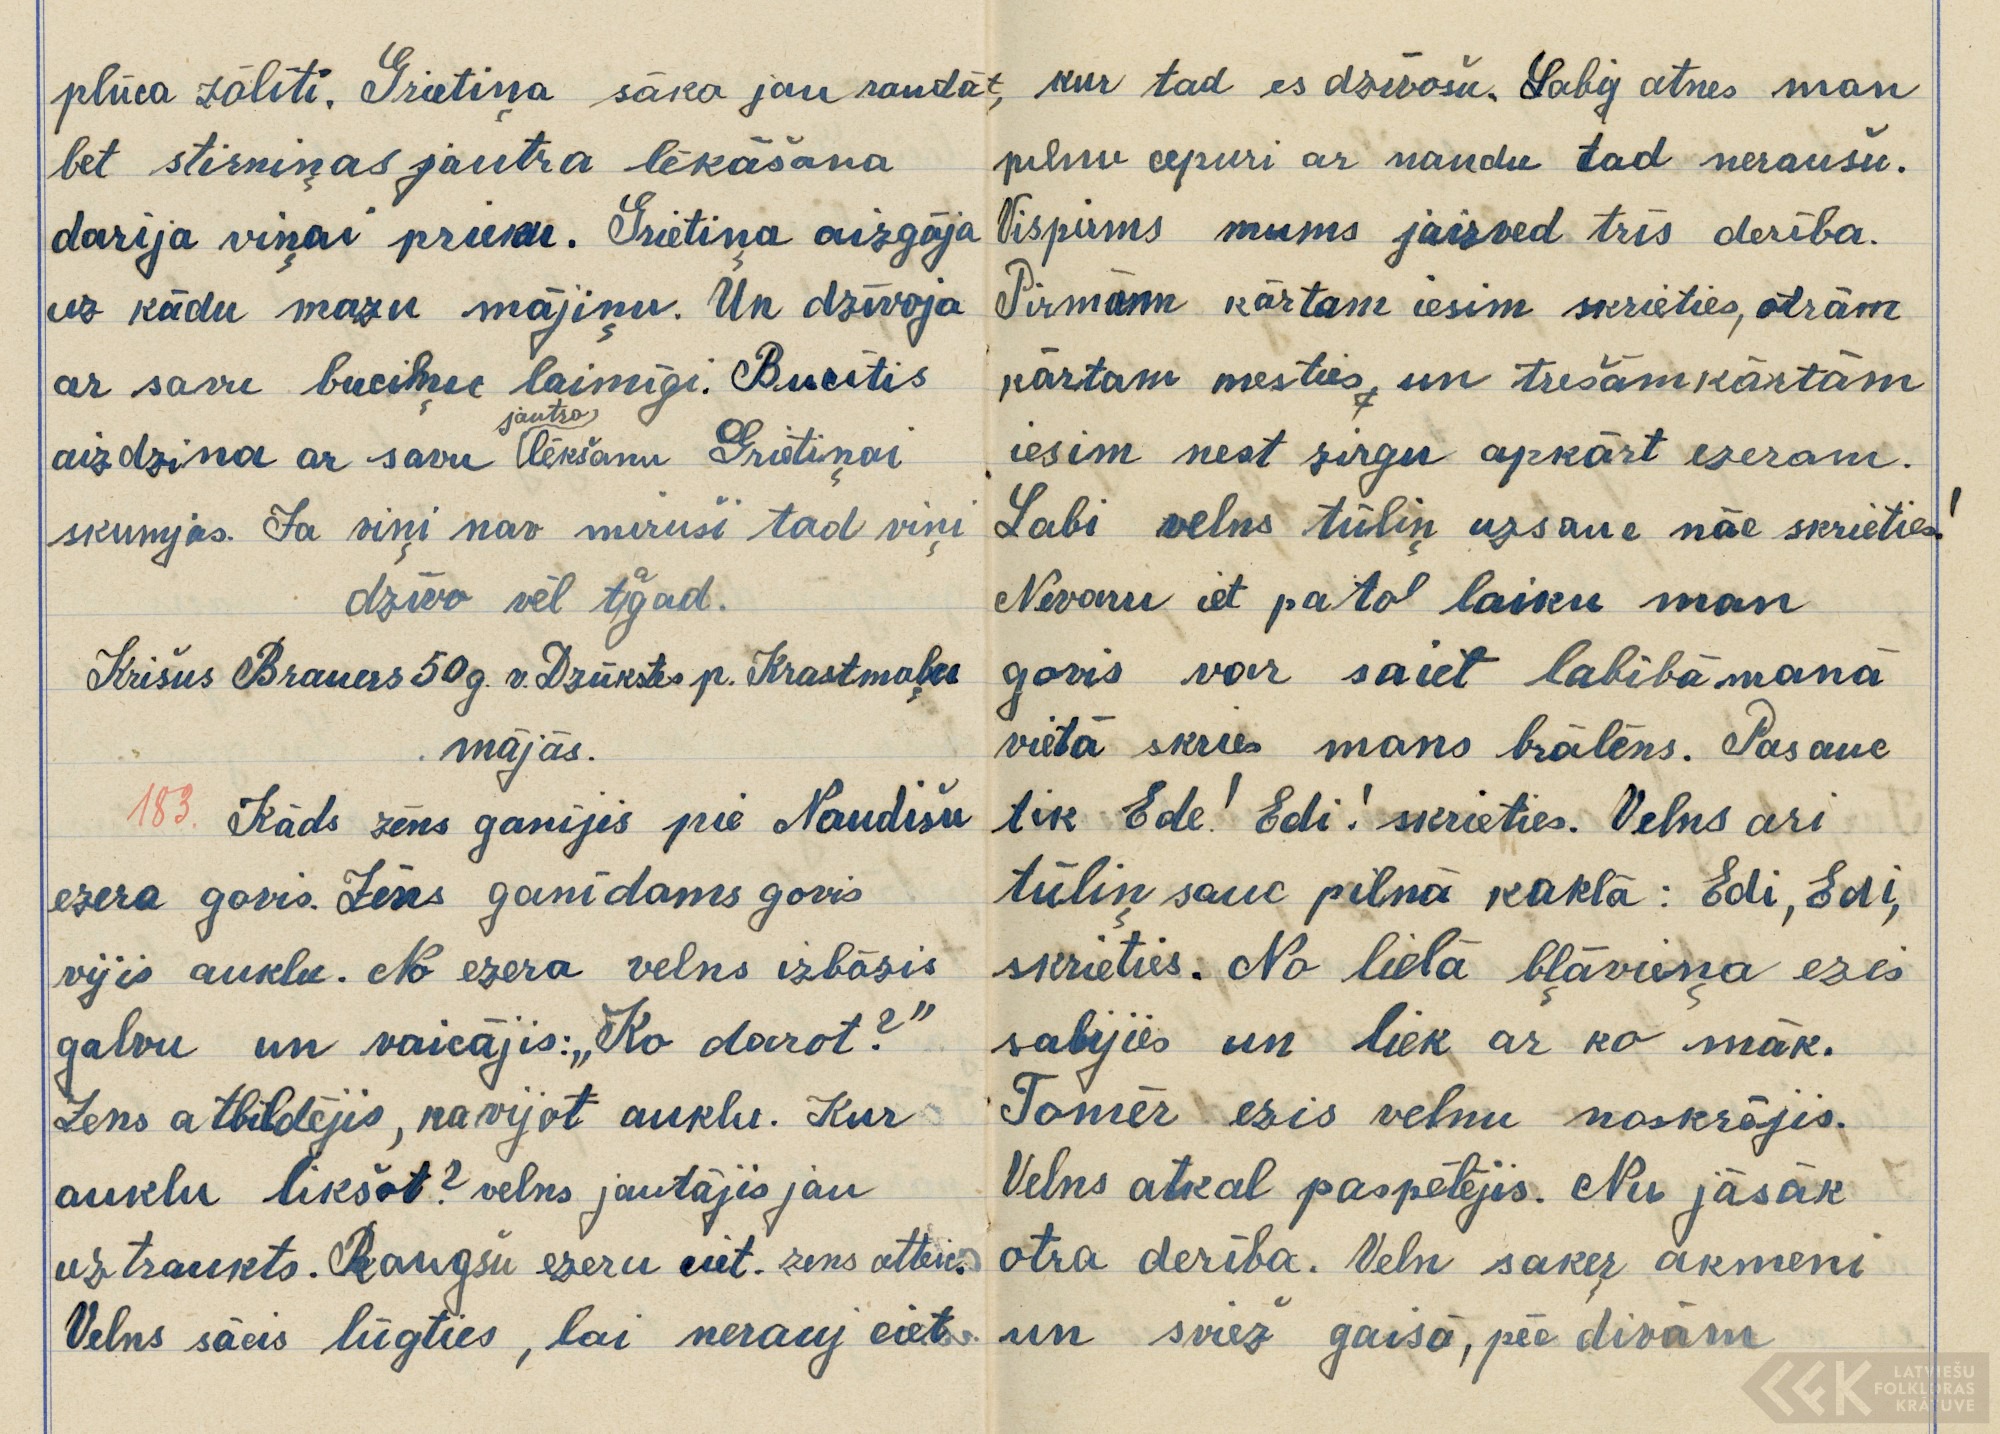 plūca zālīti. Grietiņa sāka jau raudāt,
bet stirniņas jautra lēkāšana
darīja viņai prieku. Grietiņa aizgāja
uz kādu mazu mājiņu. Un dzīvoja
ar savu buciņu laimīgi. Bucītis
jautro
aizdzina ar savu lēkšanu Grietiņai
skumjas. Ja viņi nav miruši tad viņi
dzīvo vēl tagad.
Krišus Brauers 50 g. v. Dzūkstes p. Krastmaļu
mājās.
183. Kāds zēns ganījis pie Naudišu
ezera govis. Zēns ganīdams govis
vijis auklu. No ezera velns izbāzis
galvu un vaicājis: „Ko darot?"
Zens atbildējis, ka vijot auklu. Kur
auklu likšot? velns jautājis jau
uztraukts. Raugšu ezeru ciet. zens atteic.
Velns sācis lūgties, lai nerauj ciet
kur tad es dzīvošu. Labi atnes man
pilnu cepuri ar naudu tad neraušu.
Vispirms mums jaizved trīs derība.
Pirmām kārtam iesim skrieties, otrām
kārtam mesties, un trešām kārtām
iesim nest zirgu apkārt ezeram.
Labi velns tūliņ uzsauc nāc skrieties!
Nevaru iet pa to laiku man
govis var saiet labībā manā
vietā skries mans brālēns. Pasauc
tik Ede! Edi! skrieties. Velns ari
tūliņ sauc pilnā kaklā: Edi, Edi,
skrieties. No lielā bļāvieņa ezis
sabijies un liek ar ko māk.
Tomēr ezis velnu noskrējis.
Velns atkal paspēlējis. Nu jāsāk
otra derība. Veln saķeŗ akmeni
un sviež gaisā, pēc divām
LATVIEŠU
FOLKLORAS
KRĀTUVE